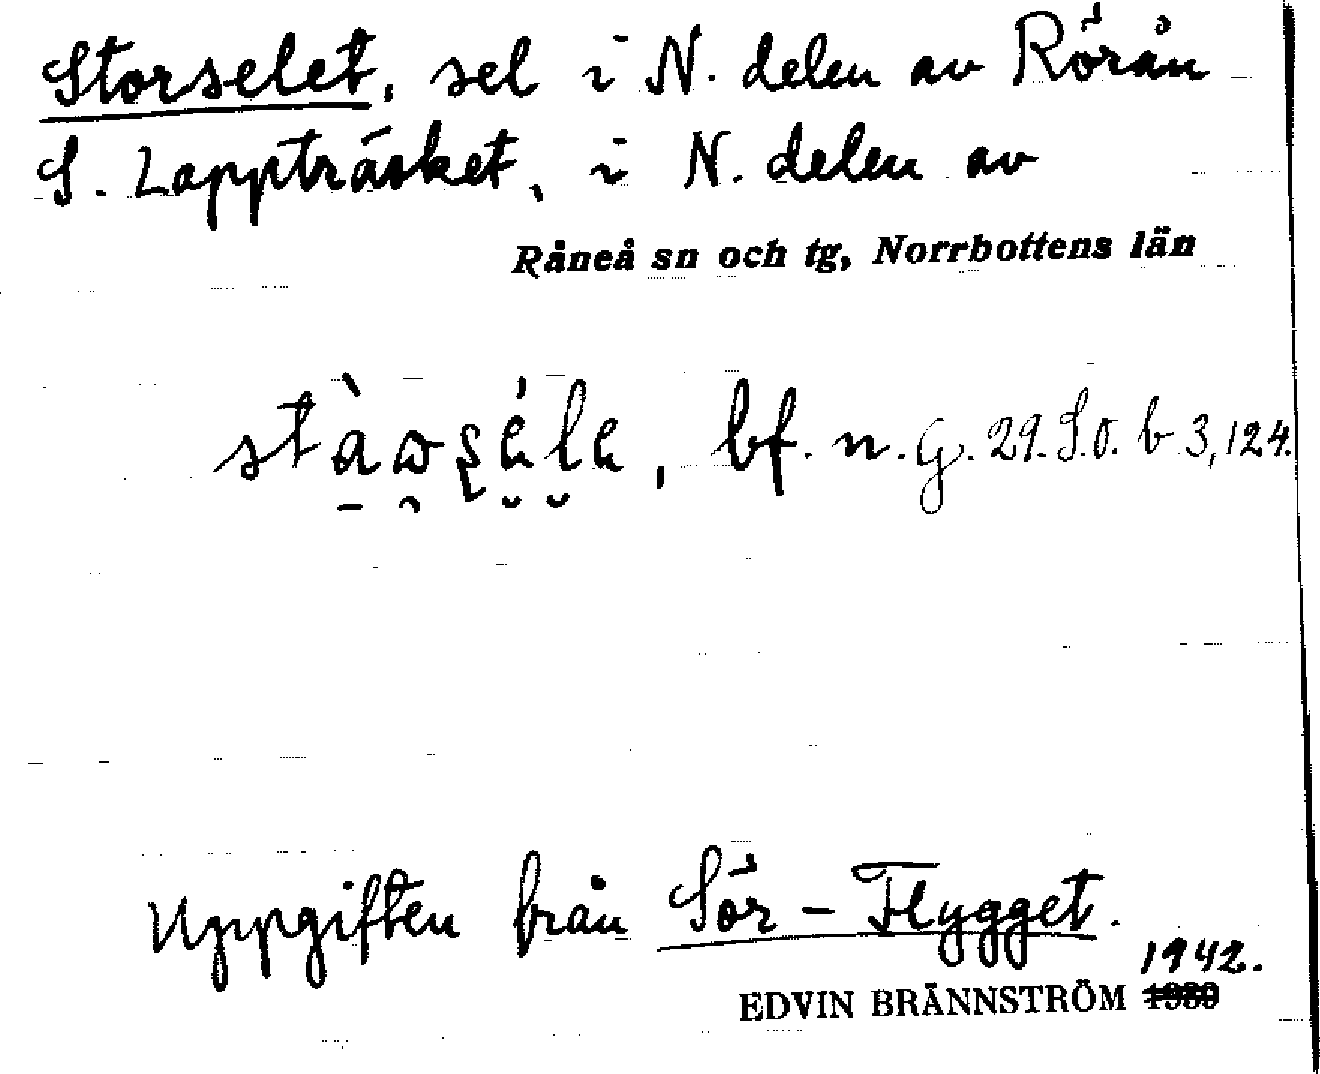 Storselet, sel i N. delen av Rörån
S. Lappträsket, i N. delen av
Råneå sn och tg, Norrbottens län
bf. n. G. 29. S.O. b 3, 124.
Uppgiften från Sör-Flygget.
1942.
EDVIN BRÄNNSTRÖM 1930